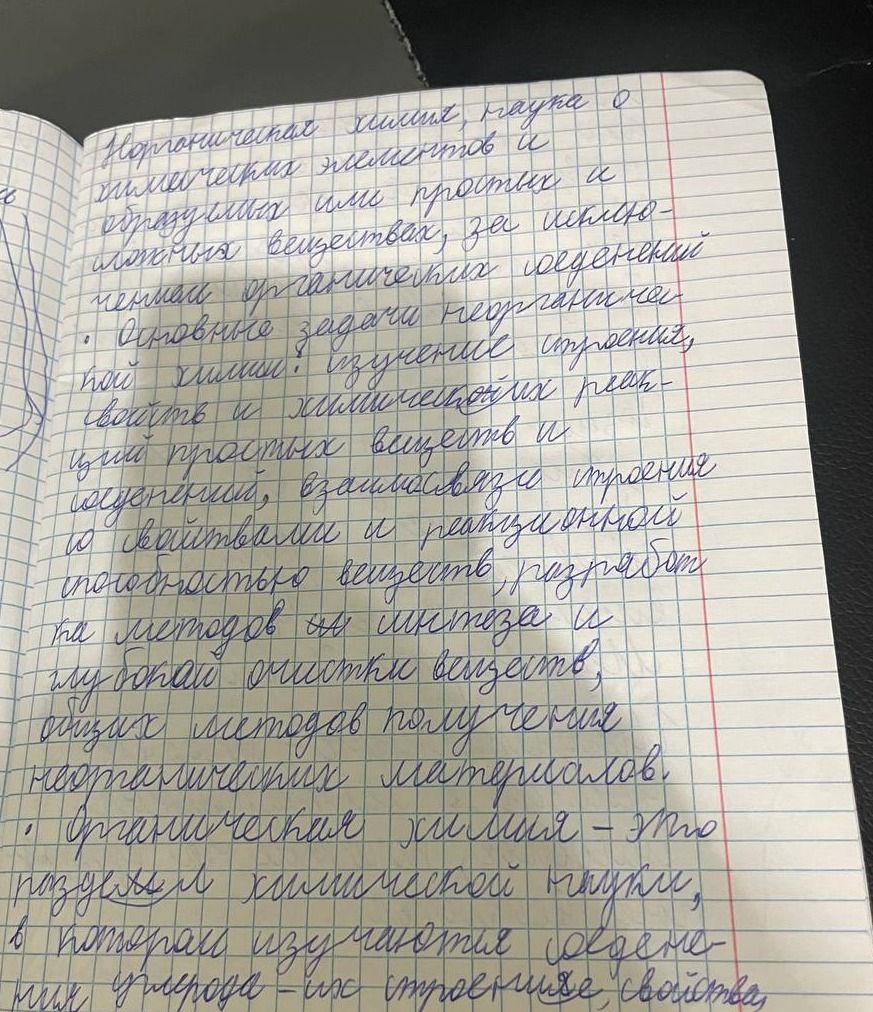 Неорганическая химия, наука о
химических элементов и
образуемых ими простых и
сложных веществах, за исклю-
чением органических соеденений
· Основные задачи неорганичес-
кой химии: изучение строения,
свойств и химических реак-
ций простых веществ и
соеденений, взаимосвязи строения
со свойствами и реакционной
способностью веществ, разработ
ка методов синтеза и
глубокой очистки веществ,
общих методов получения
неорганических материалов.
· Органическая химия – это
раздел химической науки,
в котором изучаются соедене-
ния углерода – их строение, свойства,